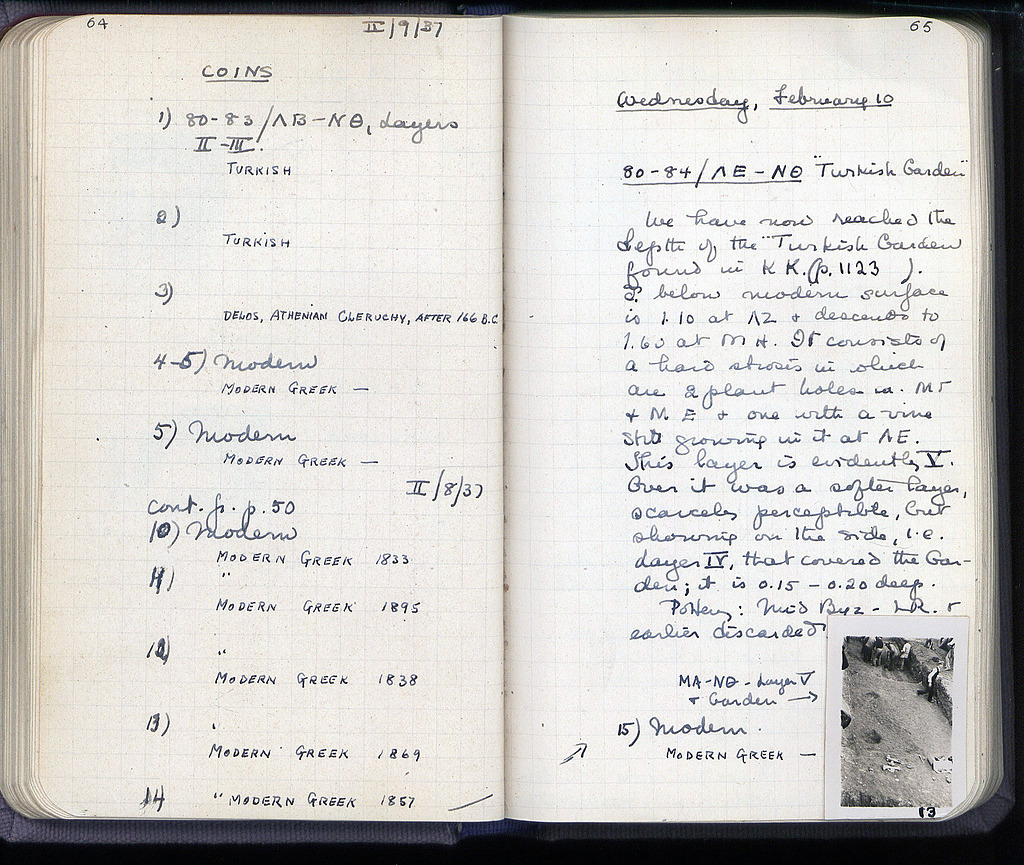 64
II/9/37
COINS
1) 80-83/ΛB-NΘ, Layers
II-III.
TURKISH
2)
TURKISH
3)
DELOS, ATHENIAN CLERUCHY, AFTER 166 B.C.
4-5) Modern
MODERN GREEK —
5) Modern
MODERN GREEK —
II/8/37
cont. fr. p. 50
10) Modern
MODERN GREEK 1833
11) "
MODERN GREEK 1895
12) "
MODERN GREEK 1838
13) "
MODERN GREEK 1869
14 " MODERN GREEK 1857
65
Wednesday, February 10
80-84/ΛE-NΘ "Turkish Garden"
We have now reached the
depth of the "Turkish Garden
found in KK (p. 1123 ).
It below modern surface
is 1.10 at ΛZ + descends to
1.60 at MH. It consists of
a hard strosis in which
are 2 plant holes in MΓ
+ ME + one with a vine
still growing in it at ΛE.
This layer is evidently V.
Over it was a softer layer,
scarcely perceptible, but
showing on the side, i.e.
Layer IV, that covered the Gar-
den; it is 0.15-0.20 deep.
Pottery: Mid Byz - LR. +
earlier discarded
MA-NΘ - Layer V
+ Garden →
15) Modern.
MODERN GREEK —
13